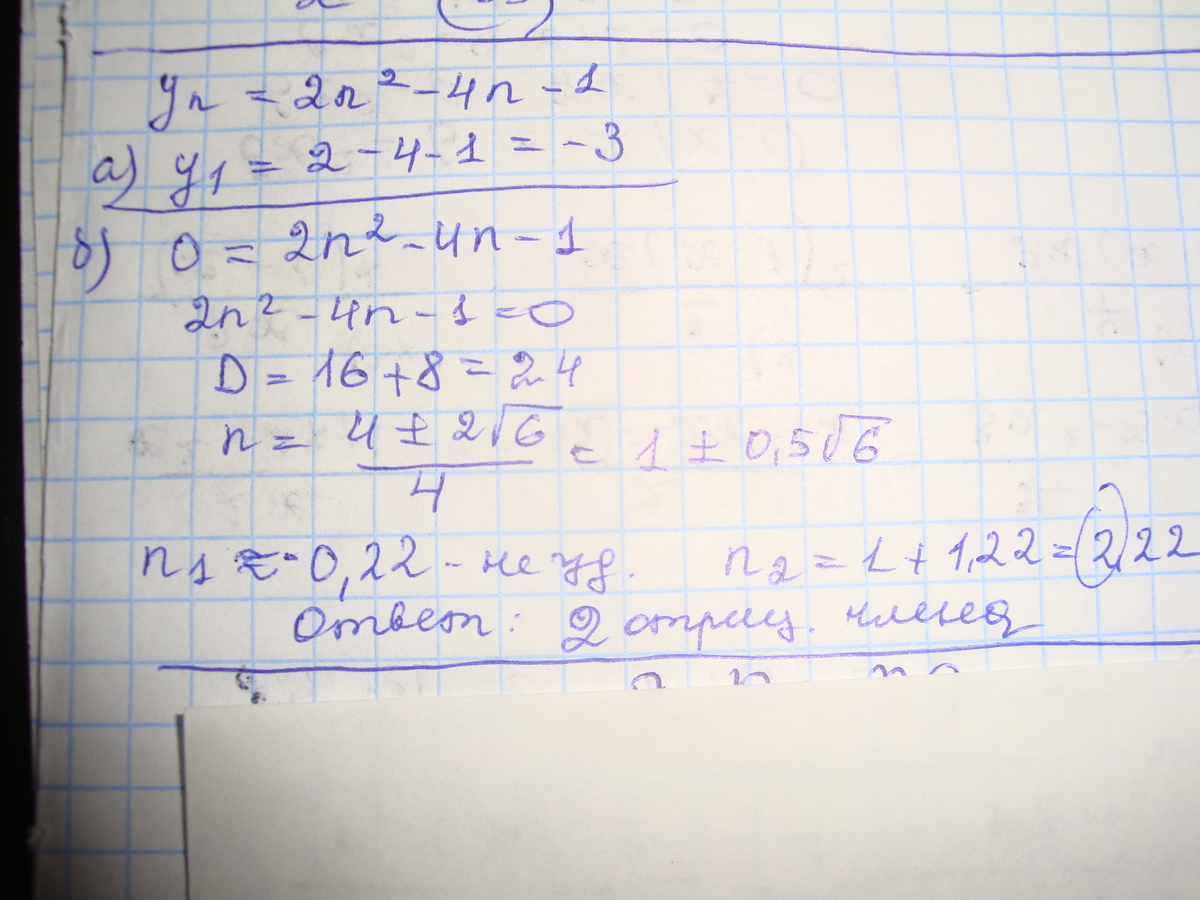 yₙ = 2n² - 4n - 1
а) y₁ = 2 - 4 - 1 = -3
б) 0 = 2n² - 4n - 1
2n² - 4n - 1 = 0
D = 16 + 8 = 24
n = (4 ± 2√6)/4 = 1 ± 0,5√6
n₁ ≈ -0,22 - не уд. n₂ = 1 + 1,22 = 2,22
Ответ: 2 отриц. члена